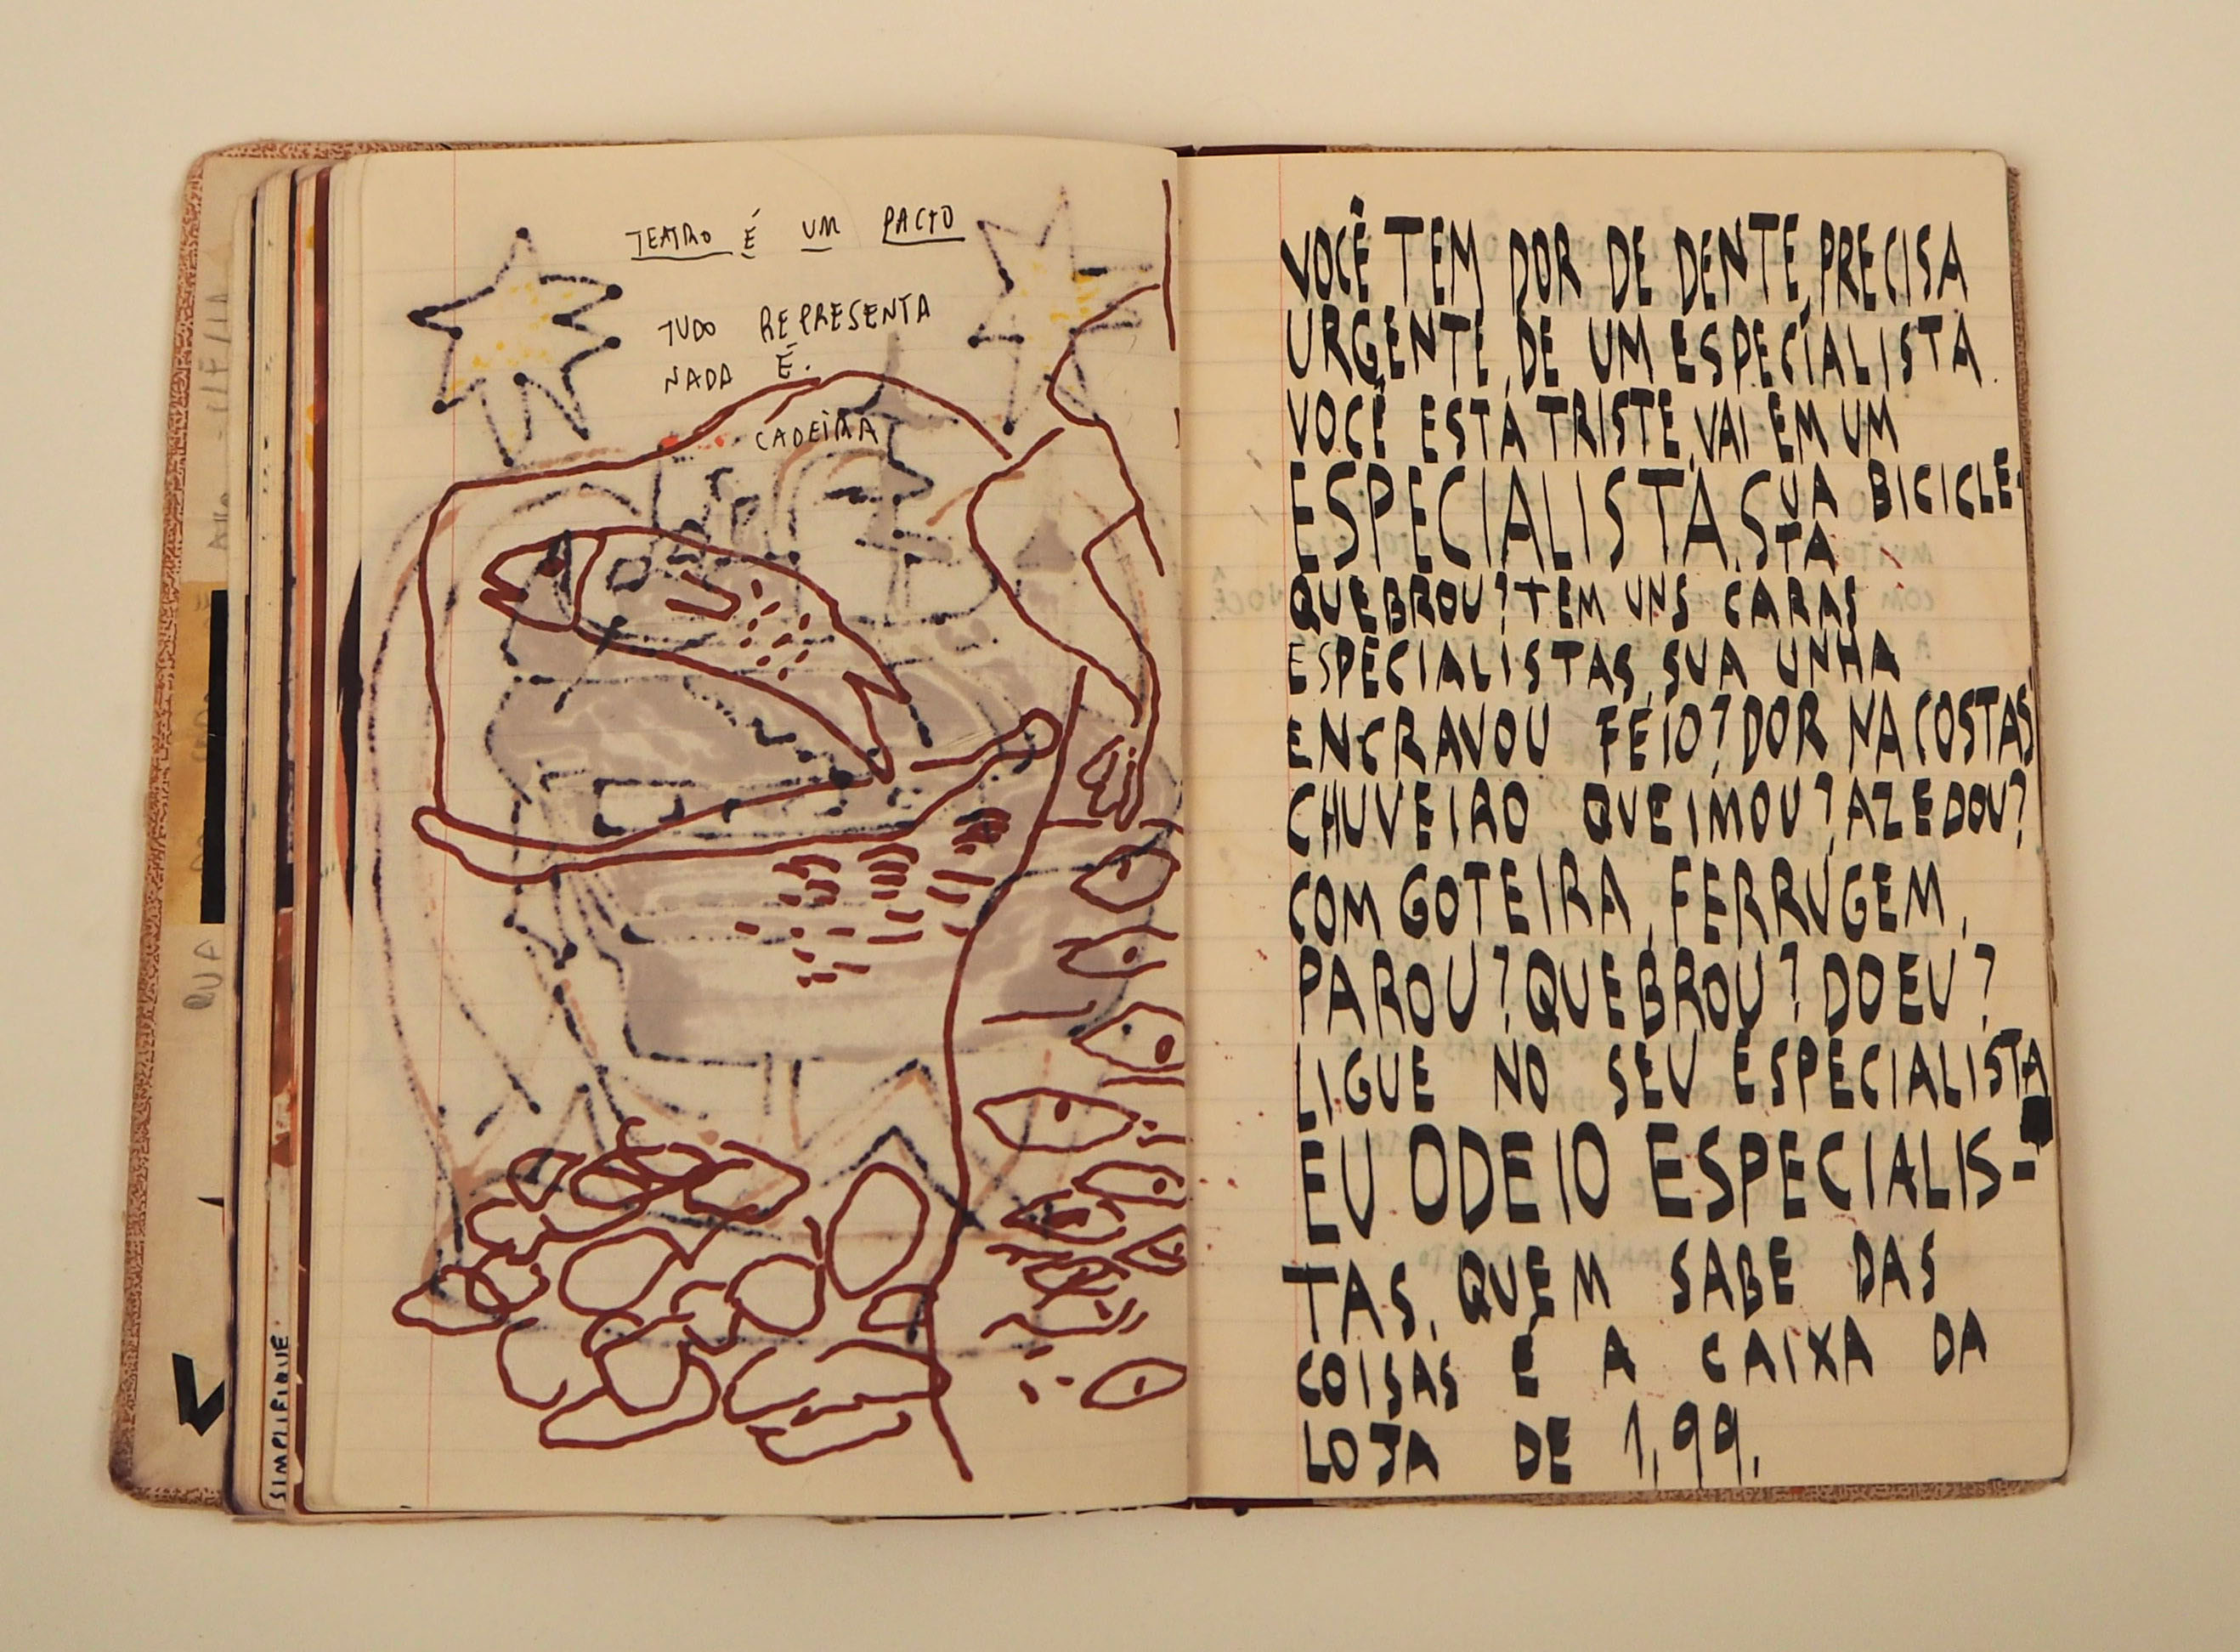 TEATRO É UM PACTO
TUDO REPRESENTA
NADA É.
CADEIRA
SIMPLIFIQUE
VOCÊ TEM DOR DE DENTE, PRECISA
URGENTE DE UM ESPECIALISTA.
VOCÊ ESTÁ TRISTE, VAI EM UM
ESPECIALISTA. SUA BICICLE-
TA
QUEBROU? TEM UNS CARAS
ESPECIALISTAS, SUA UNHA
ENCRAVOU FEIO? DOR NA COSTAS
CHUVEIRO QUEIMOU? AZEDOU?
COM GOTEIRA, FERRUGEM,
PAROU? QUEBROU? DOEU?
LIGUE NO SEU ESPECIALISTA
EU ODEIO ESPECIALIS-
TAS. QUEM SABE DAS
COISAS É A CAIXA DA
LOJA DE 1,99.